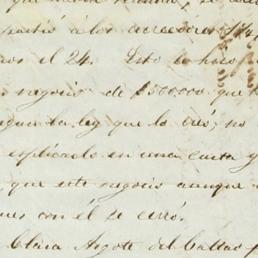 partió a los acreedores
nos el 24. Esto lo hizo
negocio de $500000 que
segun la ley que lo creó; no
explicarlo en una carta y
que este negocio aunque
con él se cerró.
Clara Argote del Callao